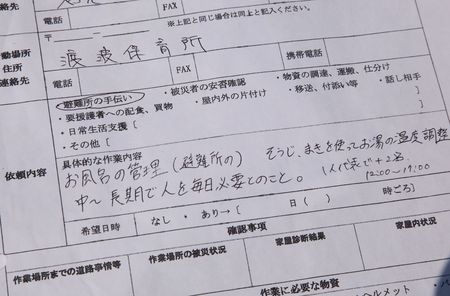 絡先
電話
FAX
※上記と同じ場合は同上と記入ください。
動場所
住所
連絡先
〒
渡波保育所
電話
FAX
携帯電話
依頼内容
避難所の手伝い
・被災者の安否確認
・物資の調達、運搬、仕分け
・要援護者への配食、買物
・屋内外の片付け
・移送、付添い等
・話し相手
・日常生活支援［　］
・その他［　］
具体的な作業内容
お風呂の管理（避難所の）　そうじ、まきを使ってお湯の温度調整
中〜長期で人を毎日必要とのこと。
1人代表で+2名
12:00〜19:00
希望日時
なし ・ あり→［　日（　）　時ごろ］
確認事項
作業場所までの道路事情等
作業場所の被災状況
家屋診断結果
家屋内状況
作業に必要な物資
ヘルメット